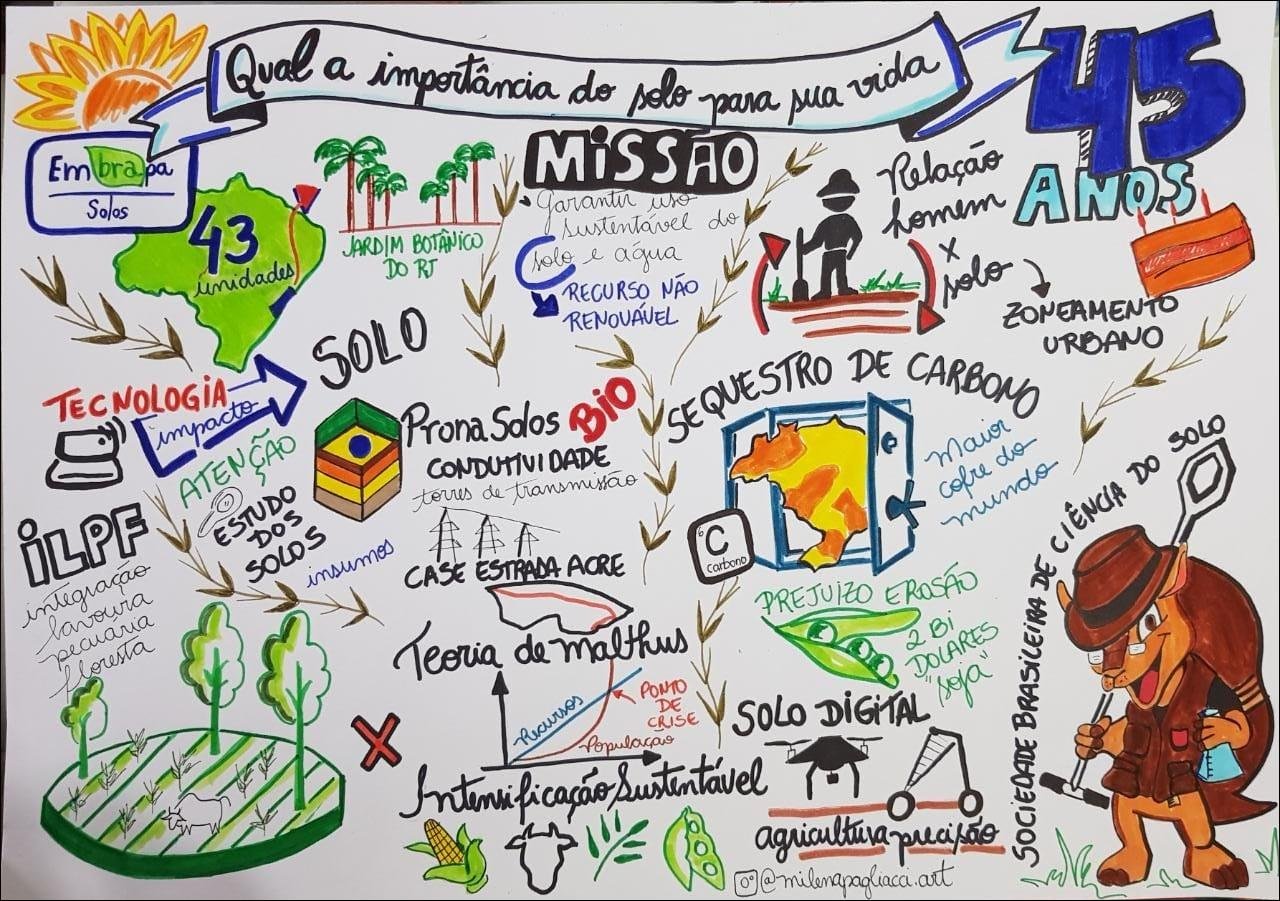 Qual a importância do solo para sua vida
45
ANOS
Embrapa
Solos
43
unidades
JARDIM BOTÂNICO
DO RJ
MiSSÃO
Garantir uso
sustentável do
solo e água
RECURSO NÃO
RENOVÁVEL
Relação
homem
x
solo
ZONEAMENTO
URBANO
SOLO
TECNOLOGIA
impacto
ATENÇÃO
ESTUDO
DOS
SOLOS
insumos
PronaSolos BiO
CONDUTIVIDADE
torres de transmissão
CASE ESTRADA ACRE
SEQUESTRO DE CARBONO
Maior
cofre do
mundo
6
C
carbono
iLPF
integração
lavoura
pecuaria
floresta
X
Teoria de Malthus
Recursos
População
PONTO
DE
CRISE
Intensificação Sustentável
PREJUIZO EROSÃO
2 Bi
DOLARES
"soja"
SOLO DiGiTAL
agricultura precisão
@milenapagliacci.art
SOCIEDADE BRASILEIRA DE CIÊNCIA DO SOLO